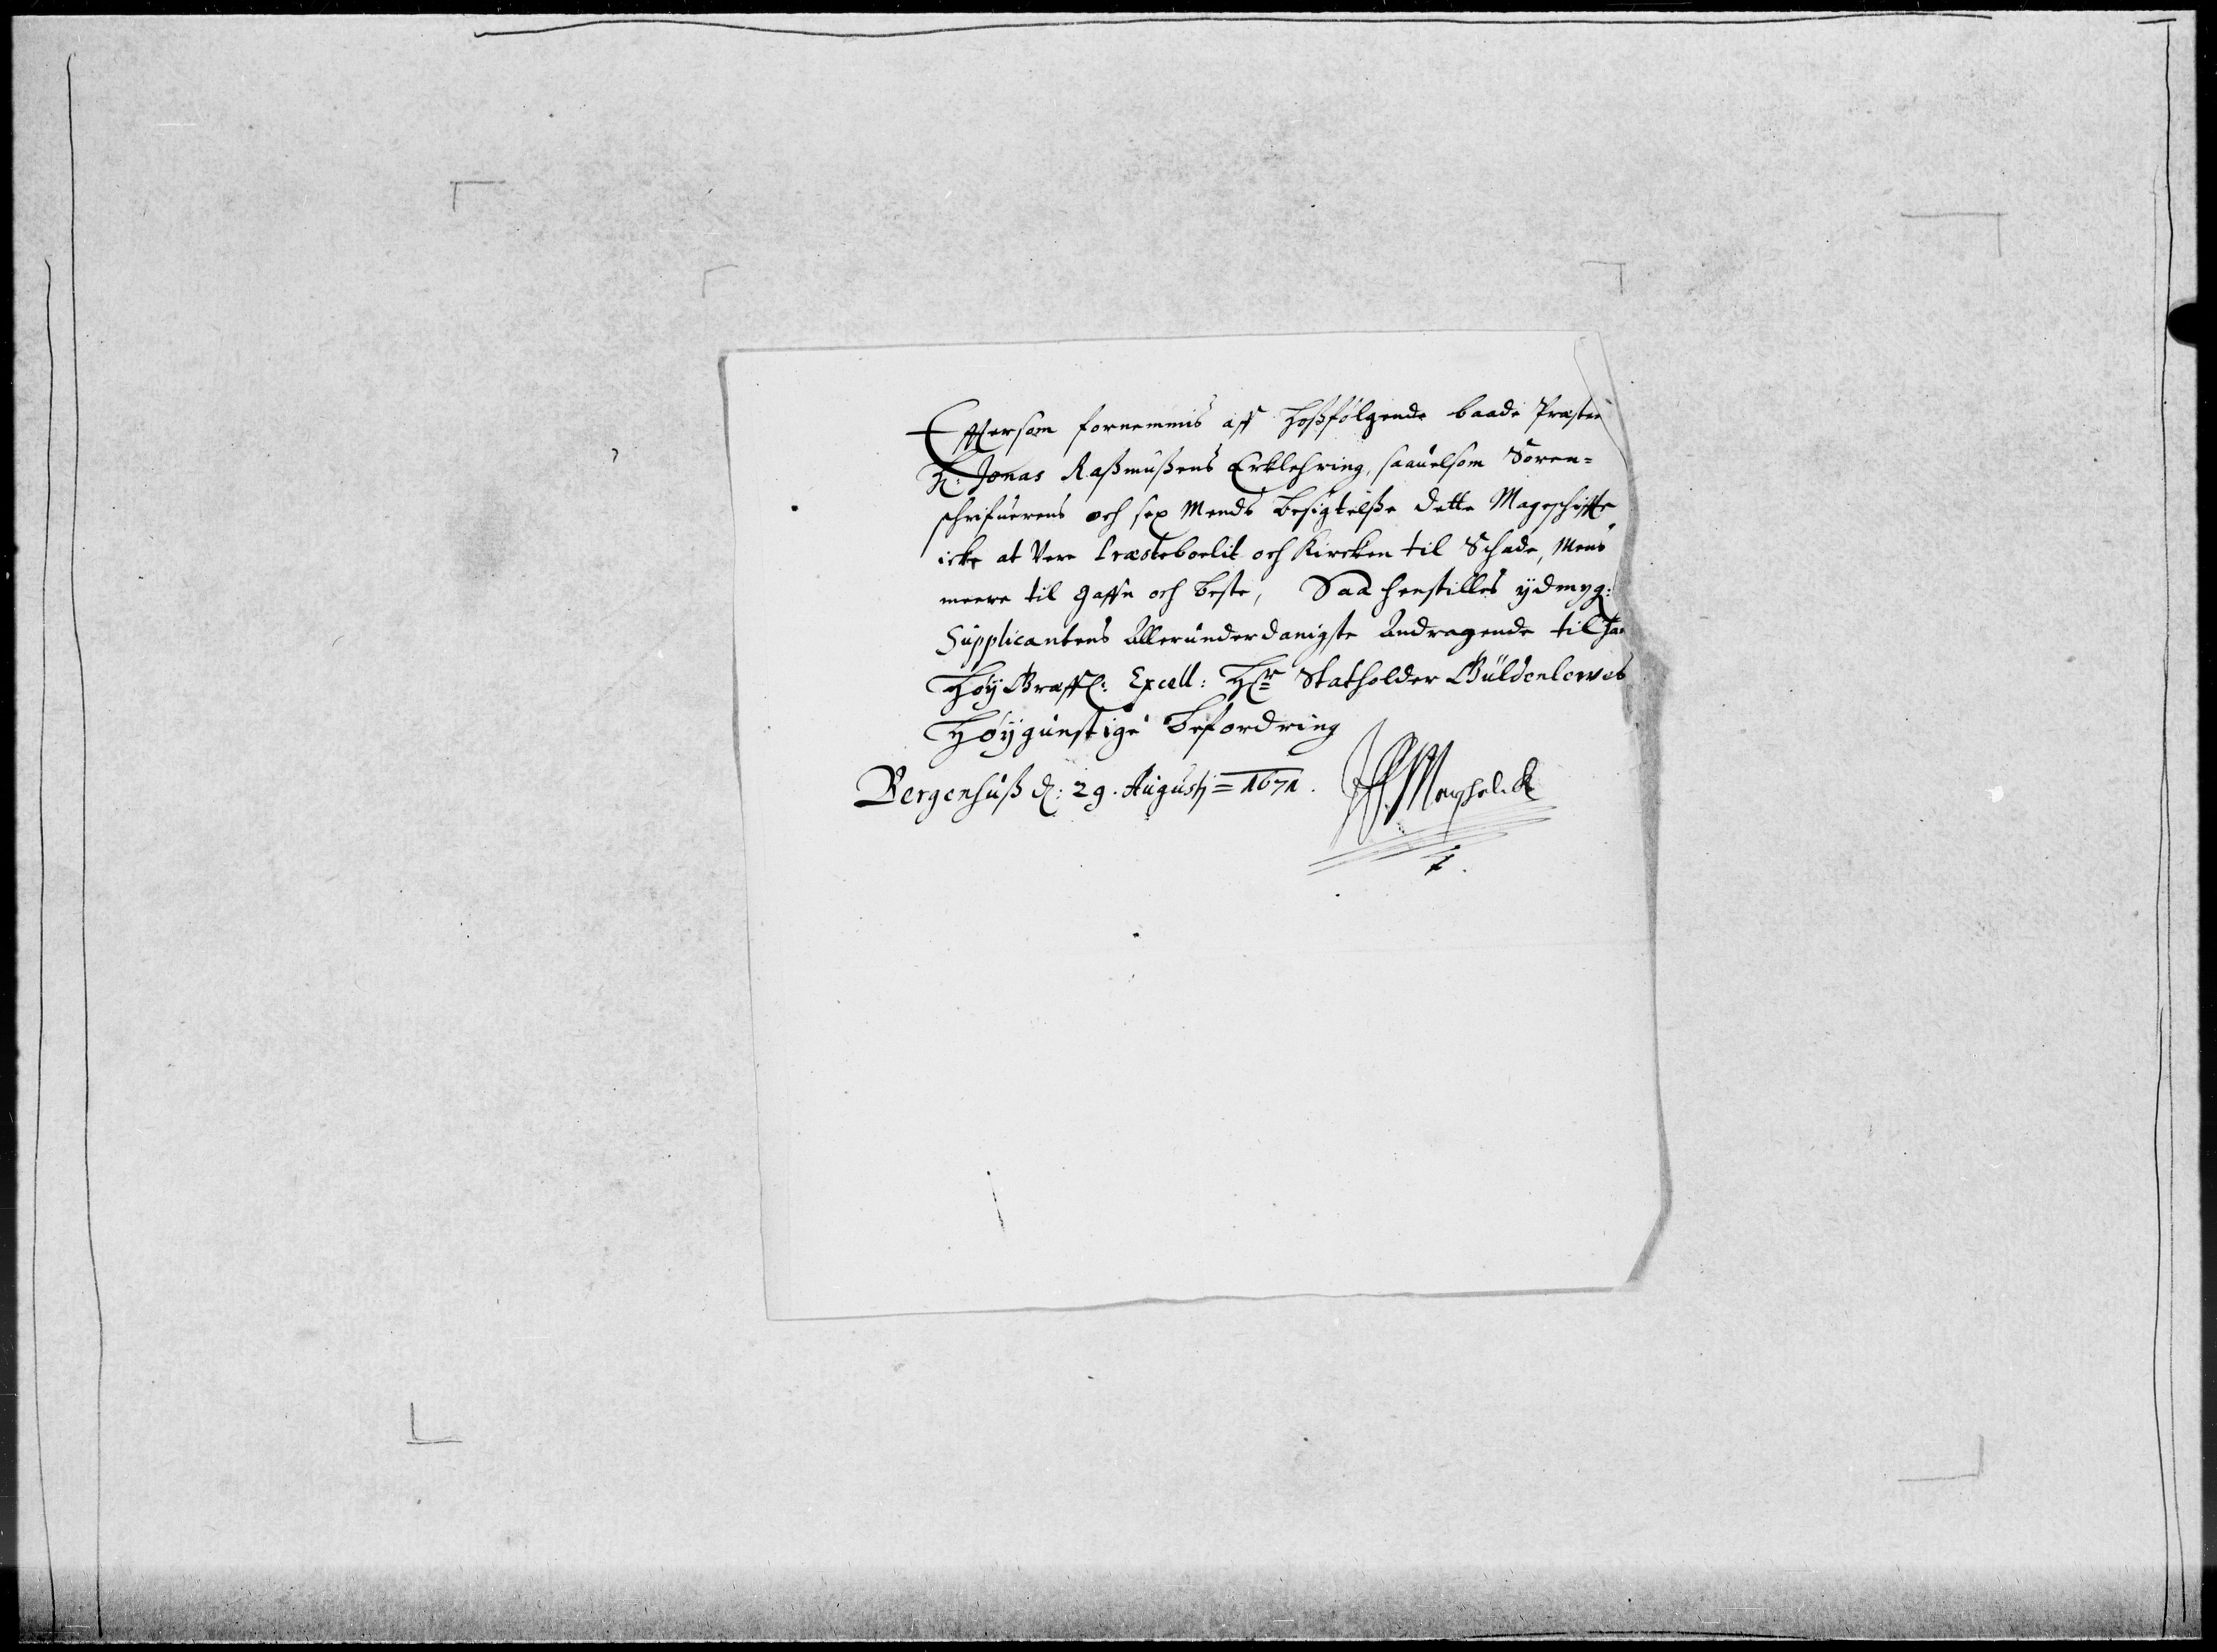 Effersom fornemmis aff hoßfølgende baade Præsten
H: Jonas Raßmußens Erklehring, saauelsom Soren-
schrifuerens och sex Mends besigtelße dette Mageschiffte
icke at Vere Præsteboelit och Kircken til Schade, Mens
meere til gaffn och beste, Saa henstilles ydmyg:
Supplicantens Allerunderdanigste Andragende til Hans
Høy Greffl: Excell: Hr Statholder Güldenlewes
Høygunstige befordring
Bergenhuß d: 29. Augustj = 1671.